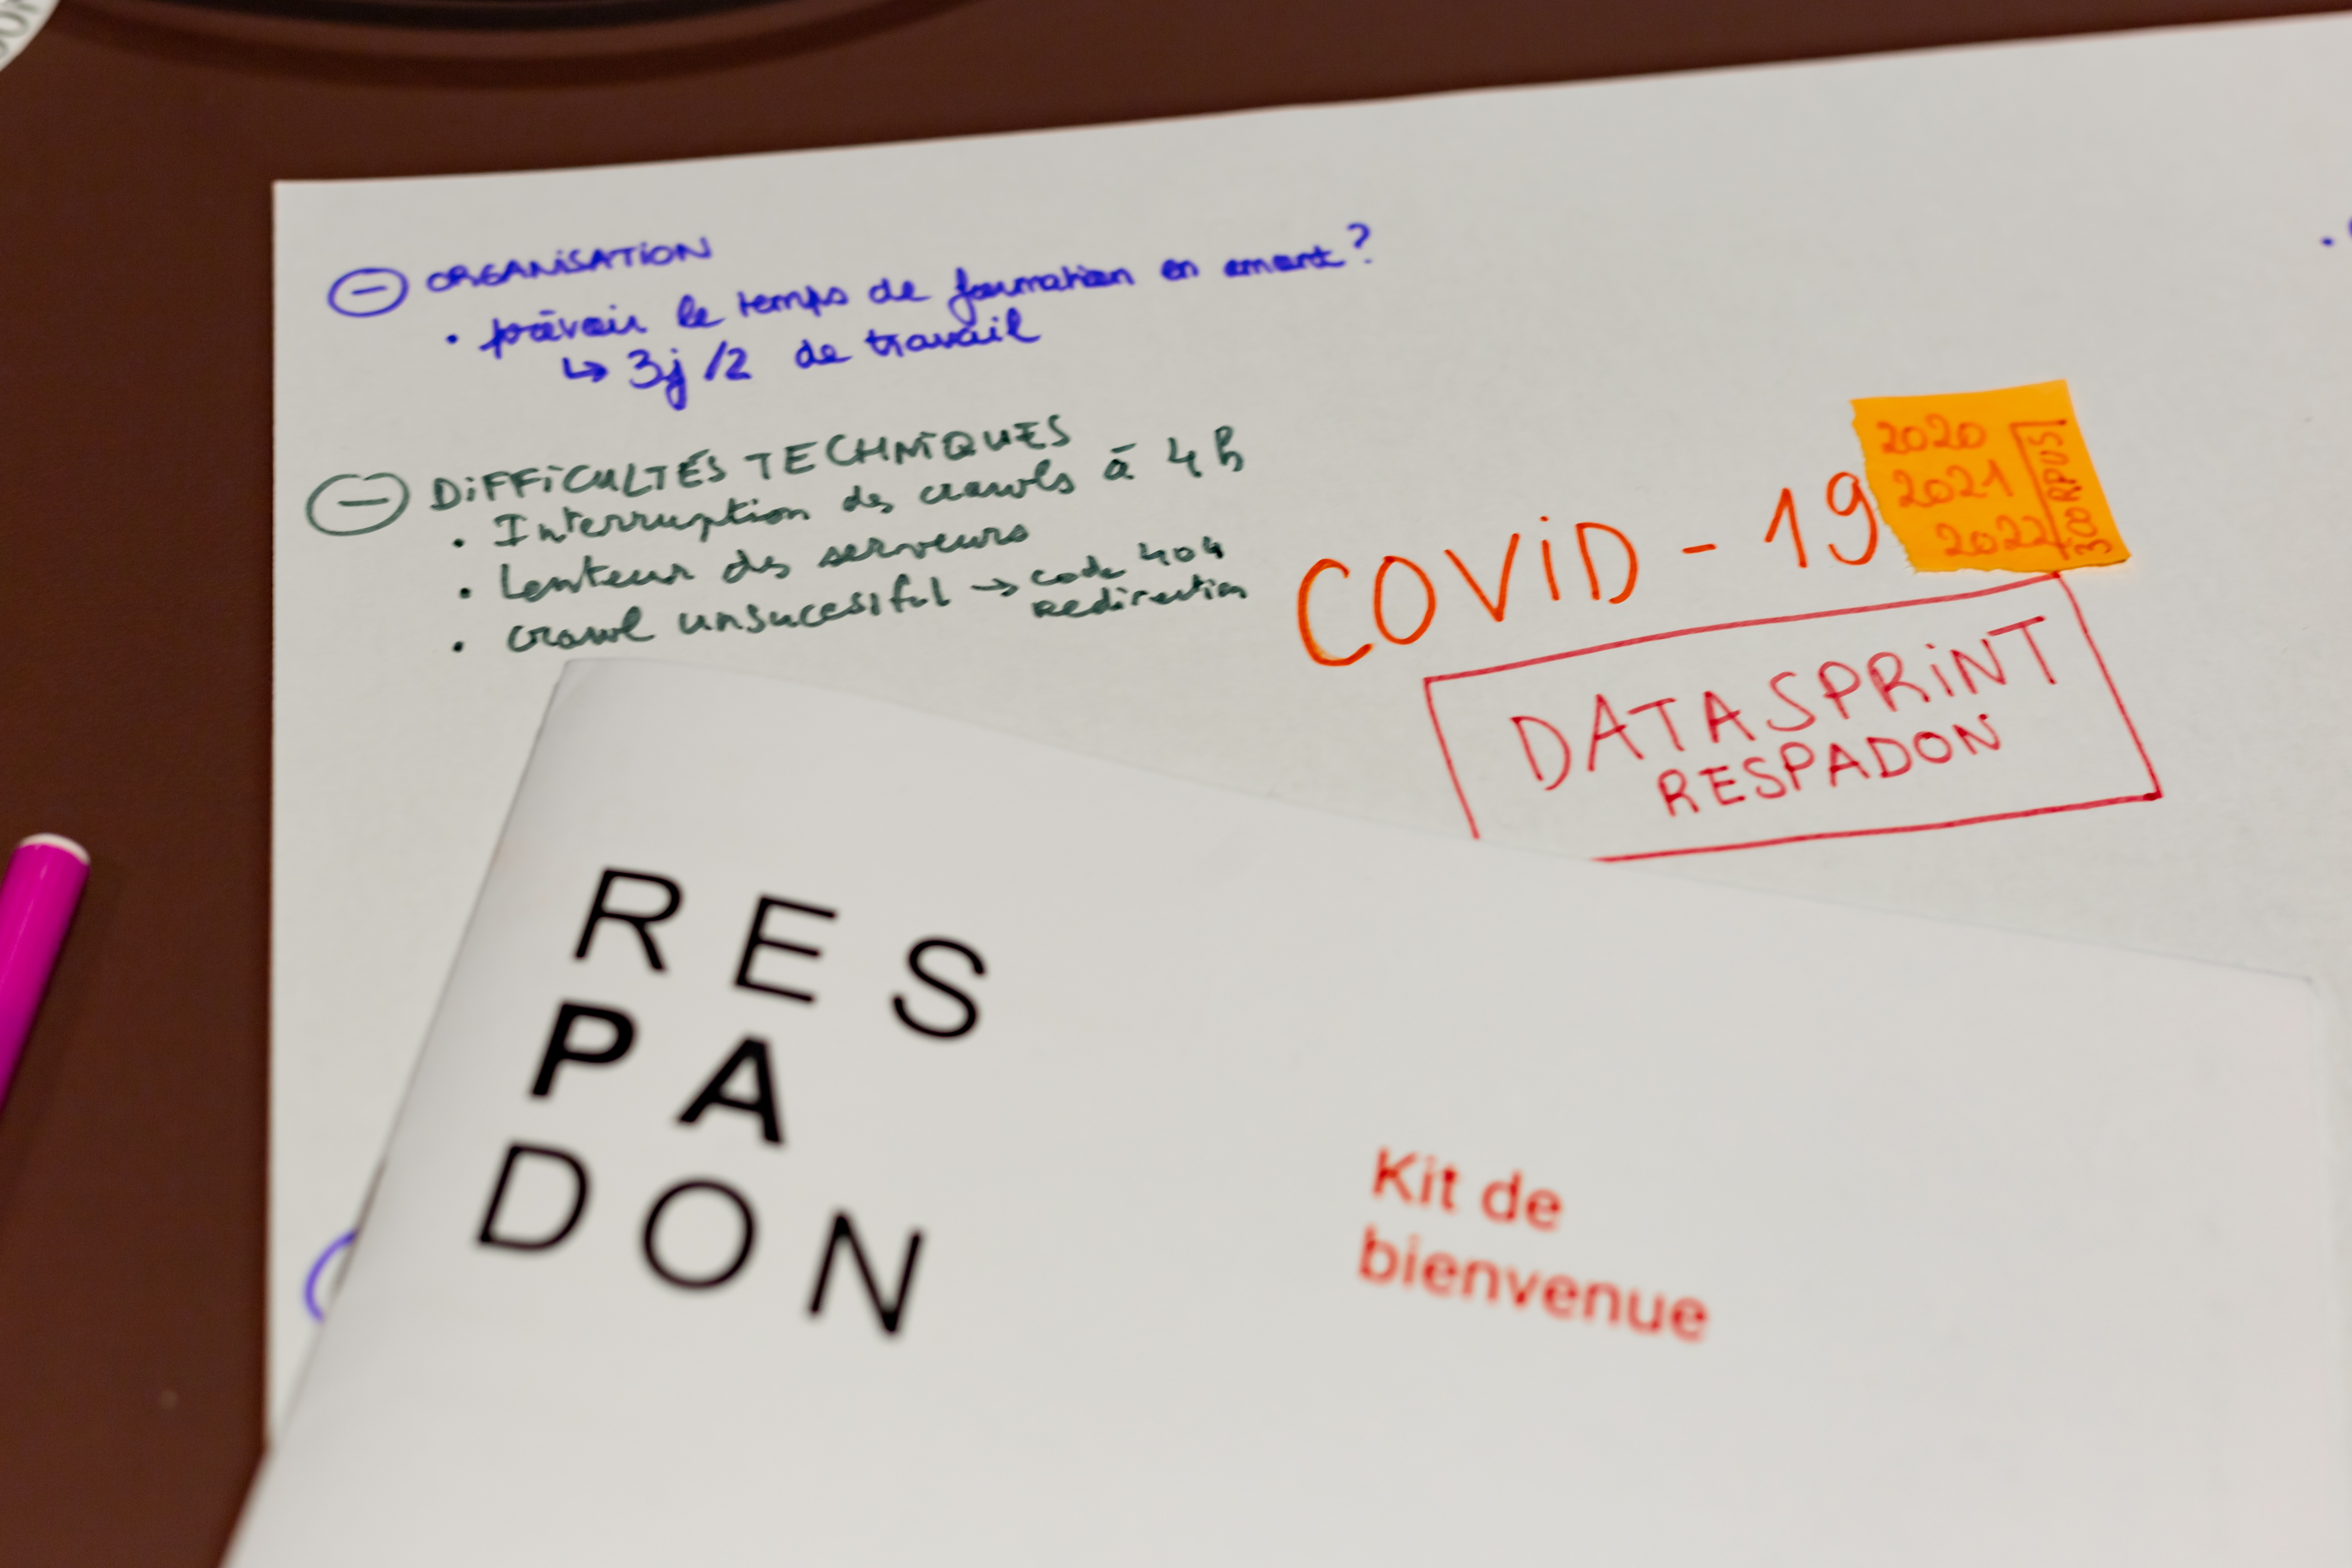 ⊖ ORGANISATION
• prévoir le temps de formation en amont ?
↳ 3j /2 de travail
⊖ DIFFICULTÉS TECHNIQUES
• Interruption des crawls à 4h
• Lenteur des serveurs
• crawl unsucessful → code 404
Redirection
COVID - 19
2020
2021
2022
3 CORPUS
DATASPRINT
RESPADON
RES
PA
DON
Kit de
bienvenue